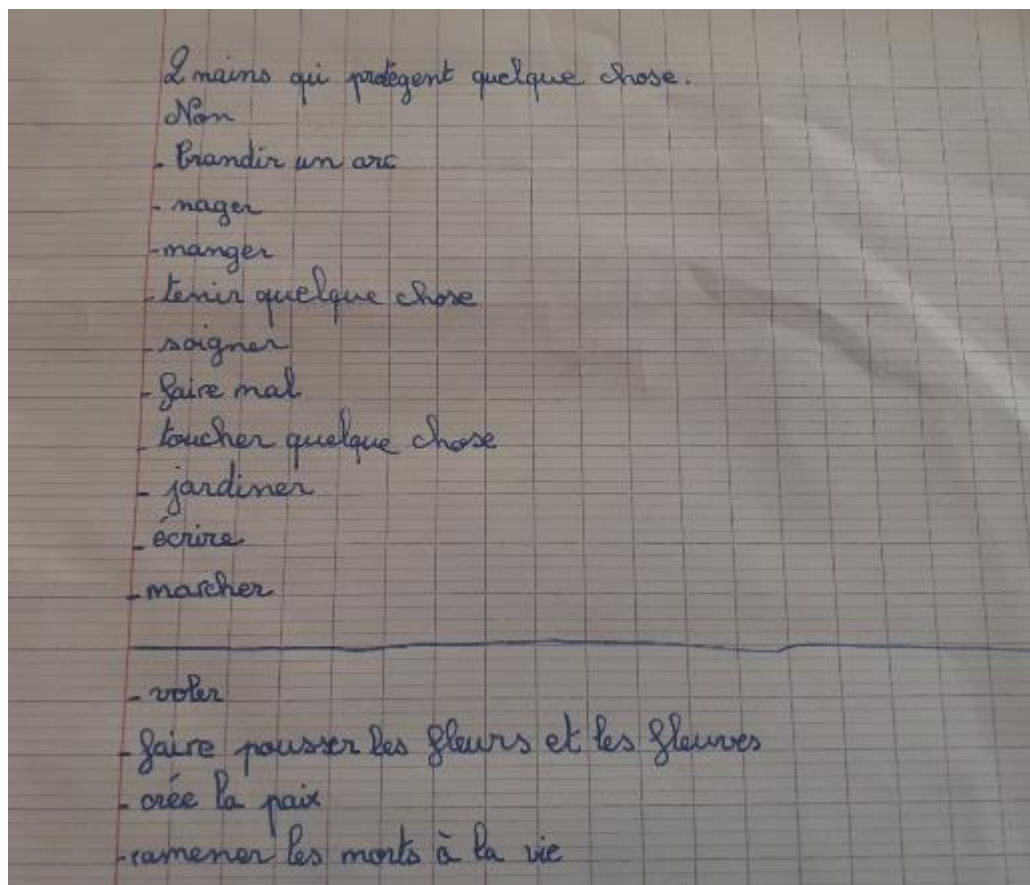 2 mains qui protègent quelque chose.
Non
- Brandir un arc
- nager
- manger
- tenir quelque chose
- soigner
- faire mal
- toucher quelque chose
- jardiner
- écrire
- marcher
- voler
- faire pousser les fleurs et les fleuves
- crée la paix
- ramener les morts à la vie